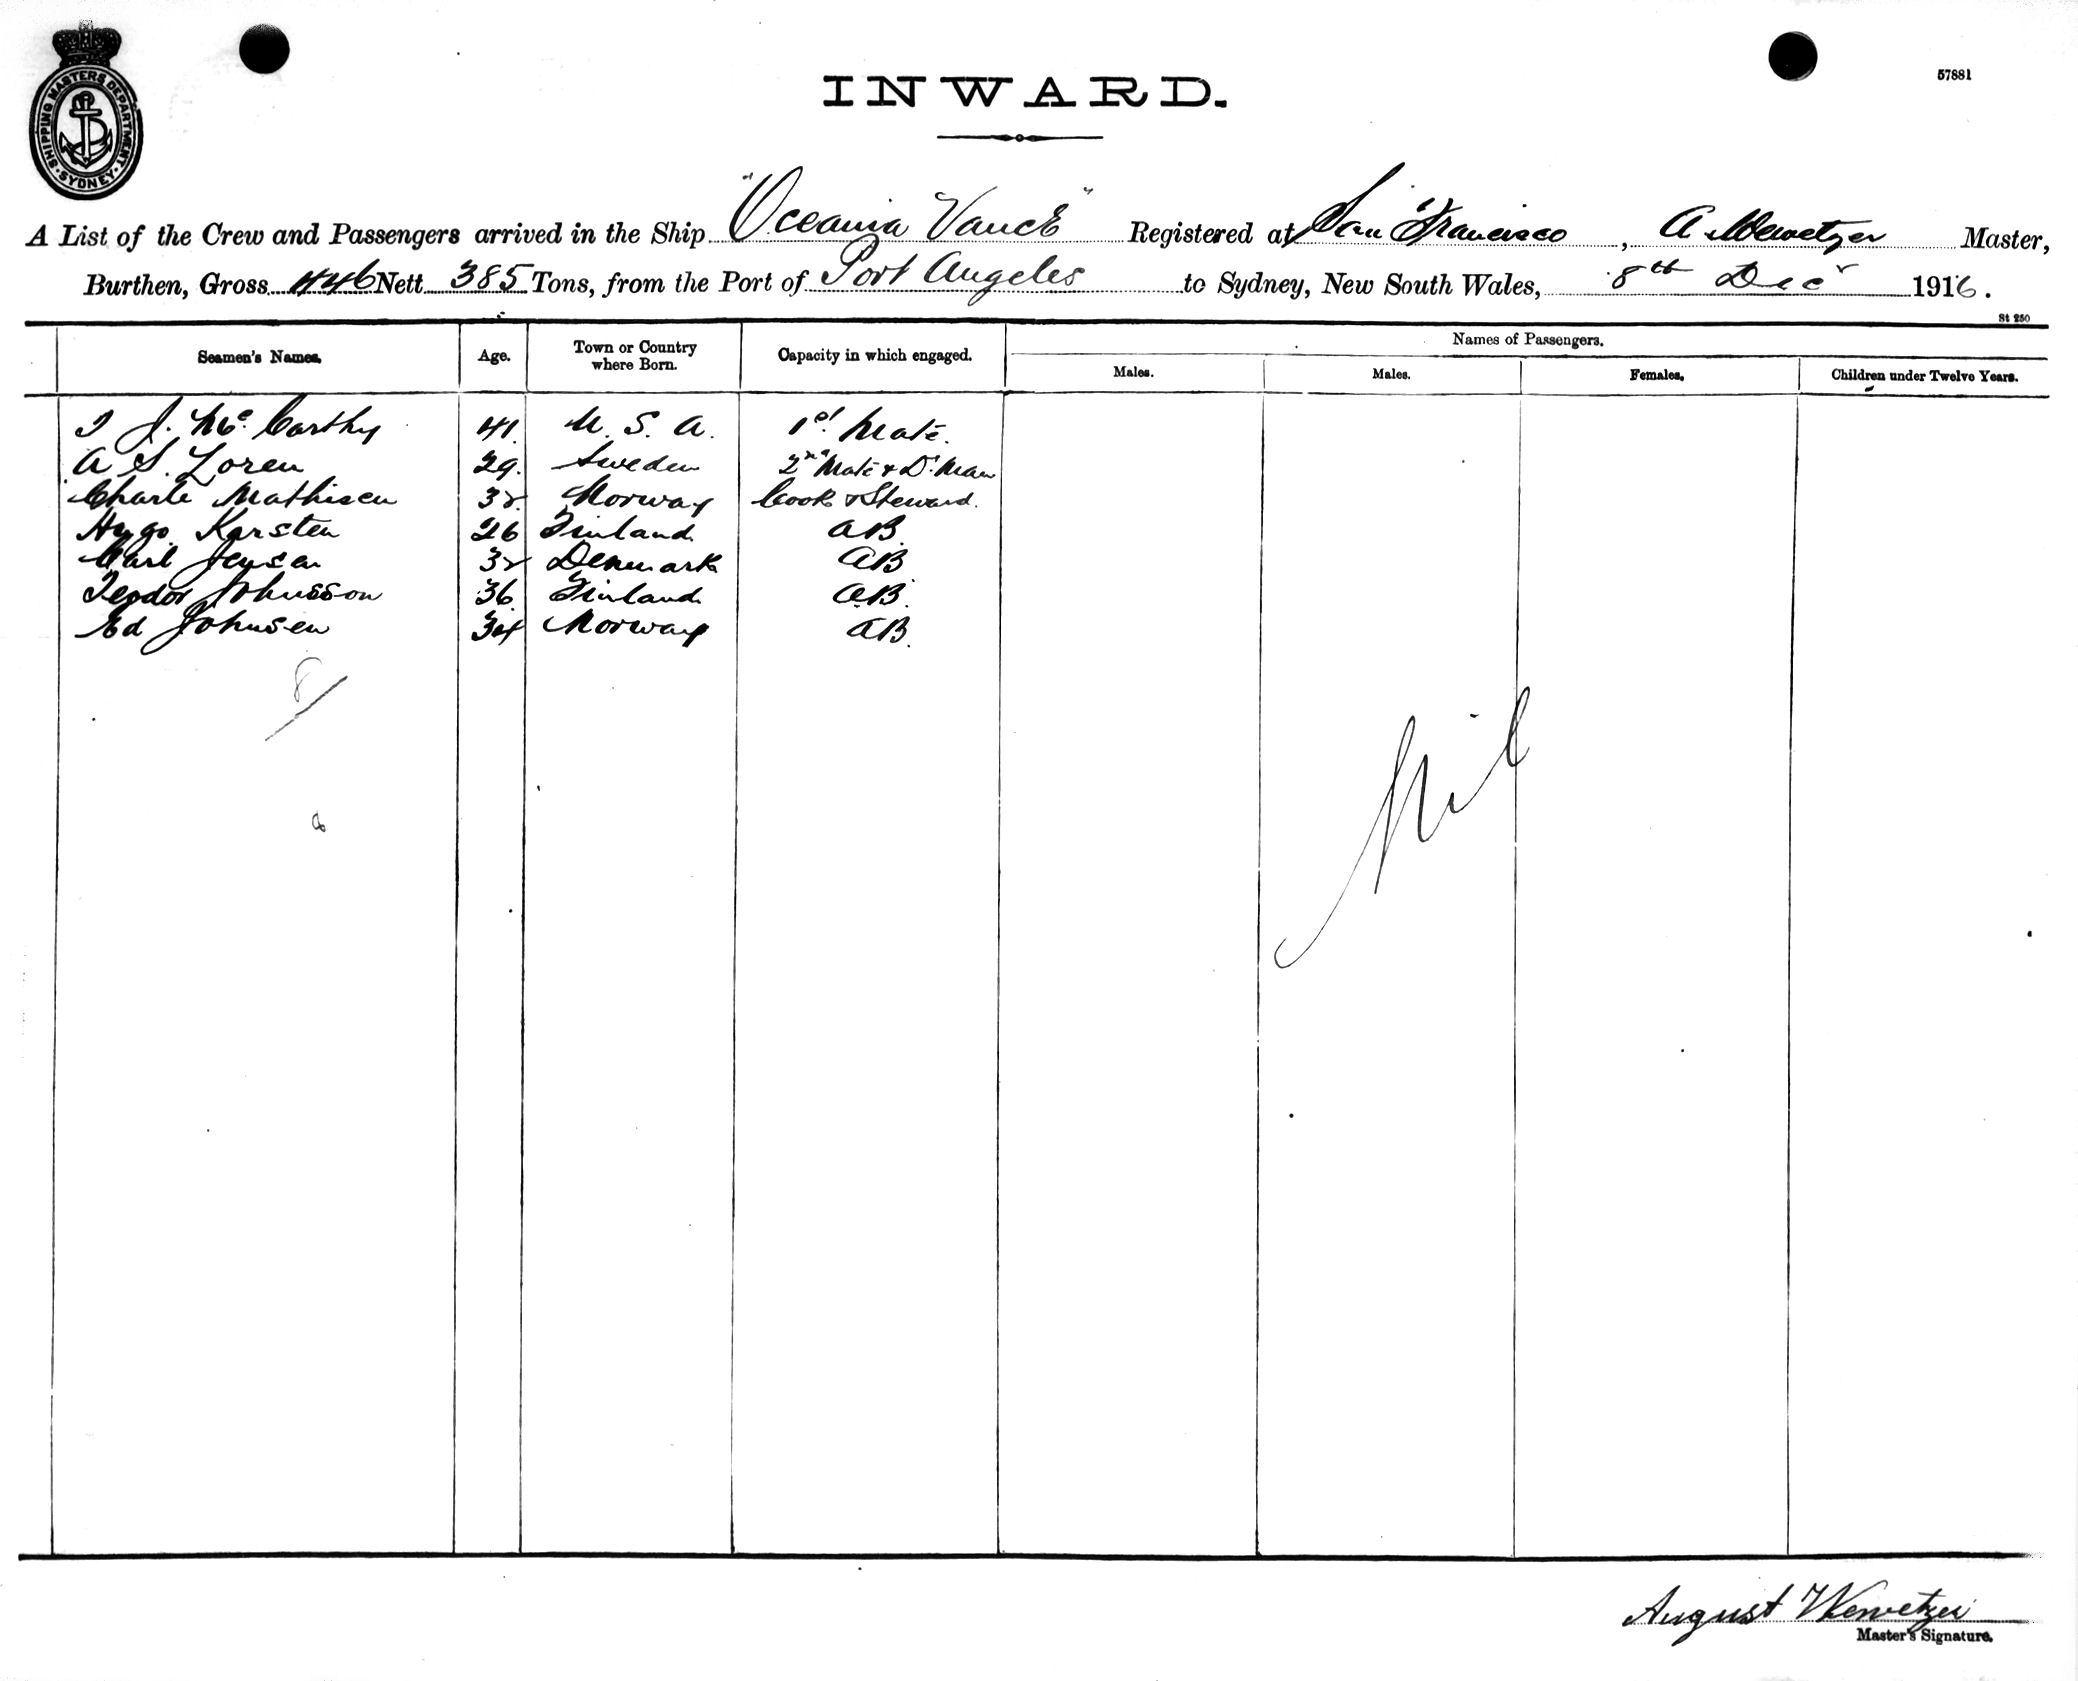 SHIPPING MASTERS DEPARTMENT
· SYDNEY ·
57881
INWARD.
A List of the Crew and Passengers arrived in the Ship "Oceania Vance" Registered at San Francisco, A Wewetzer Master,
Burthen, Gross 446 Nett 385 Tons, from the Port of Port Angeles to Sydney, New South Wales, 8th Decr 1916.
St 250
Seamen's Names. Age. Town or Country where Born. Capacity in which engaged. Names of Passengers.
Males. Males. Females. Children under Twelve Years.
J. McCarthy 41. U. S. A. 1st Mate.
A S. Loren 29. Sweden 2nd Mate & D. Man
Charle Mathisen 32. Norway Cook & Steward.
Hugo Karsten 26 Finland AB.
Carl Jensen 32 Denmark AB
Teodor Johnsson 36 Finland AB.
Ed Johnsen 34 Norway AB.
8
Nil
8
August Wewetzer
Master's Signature.